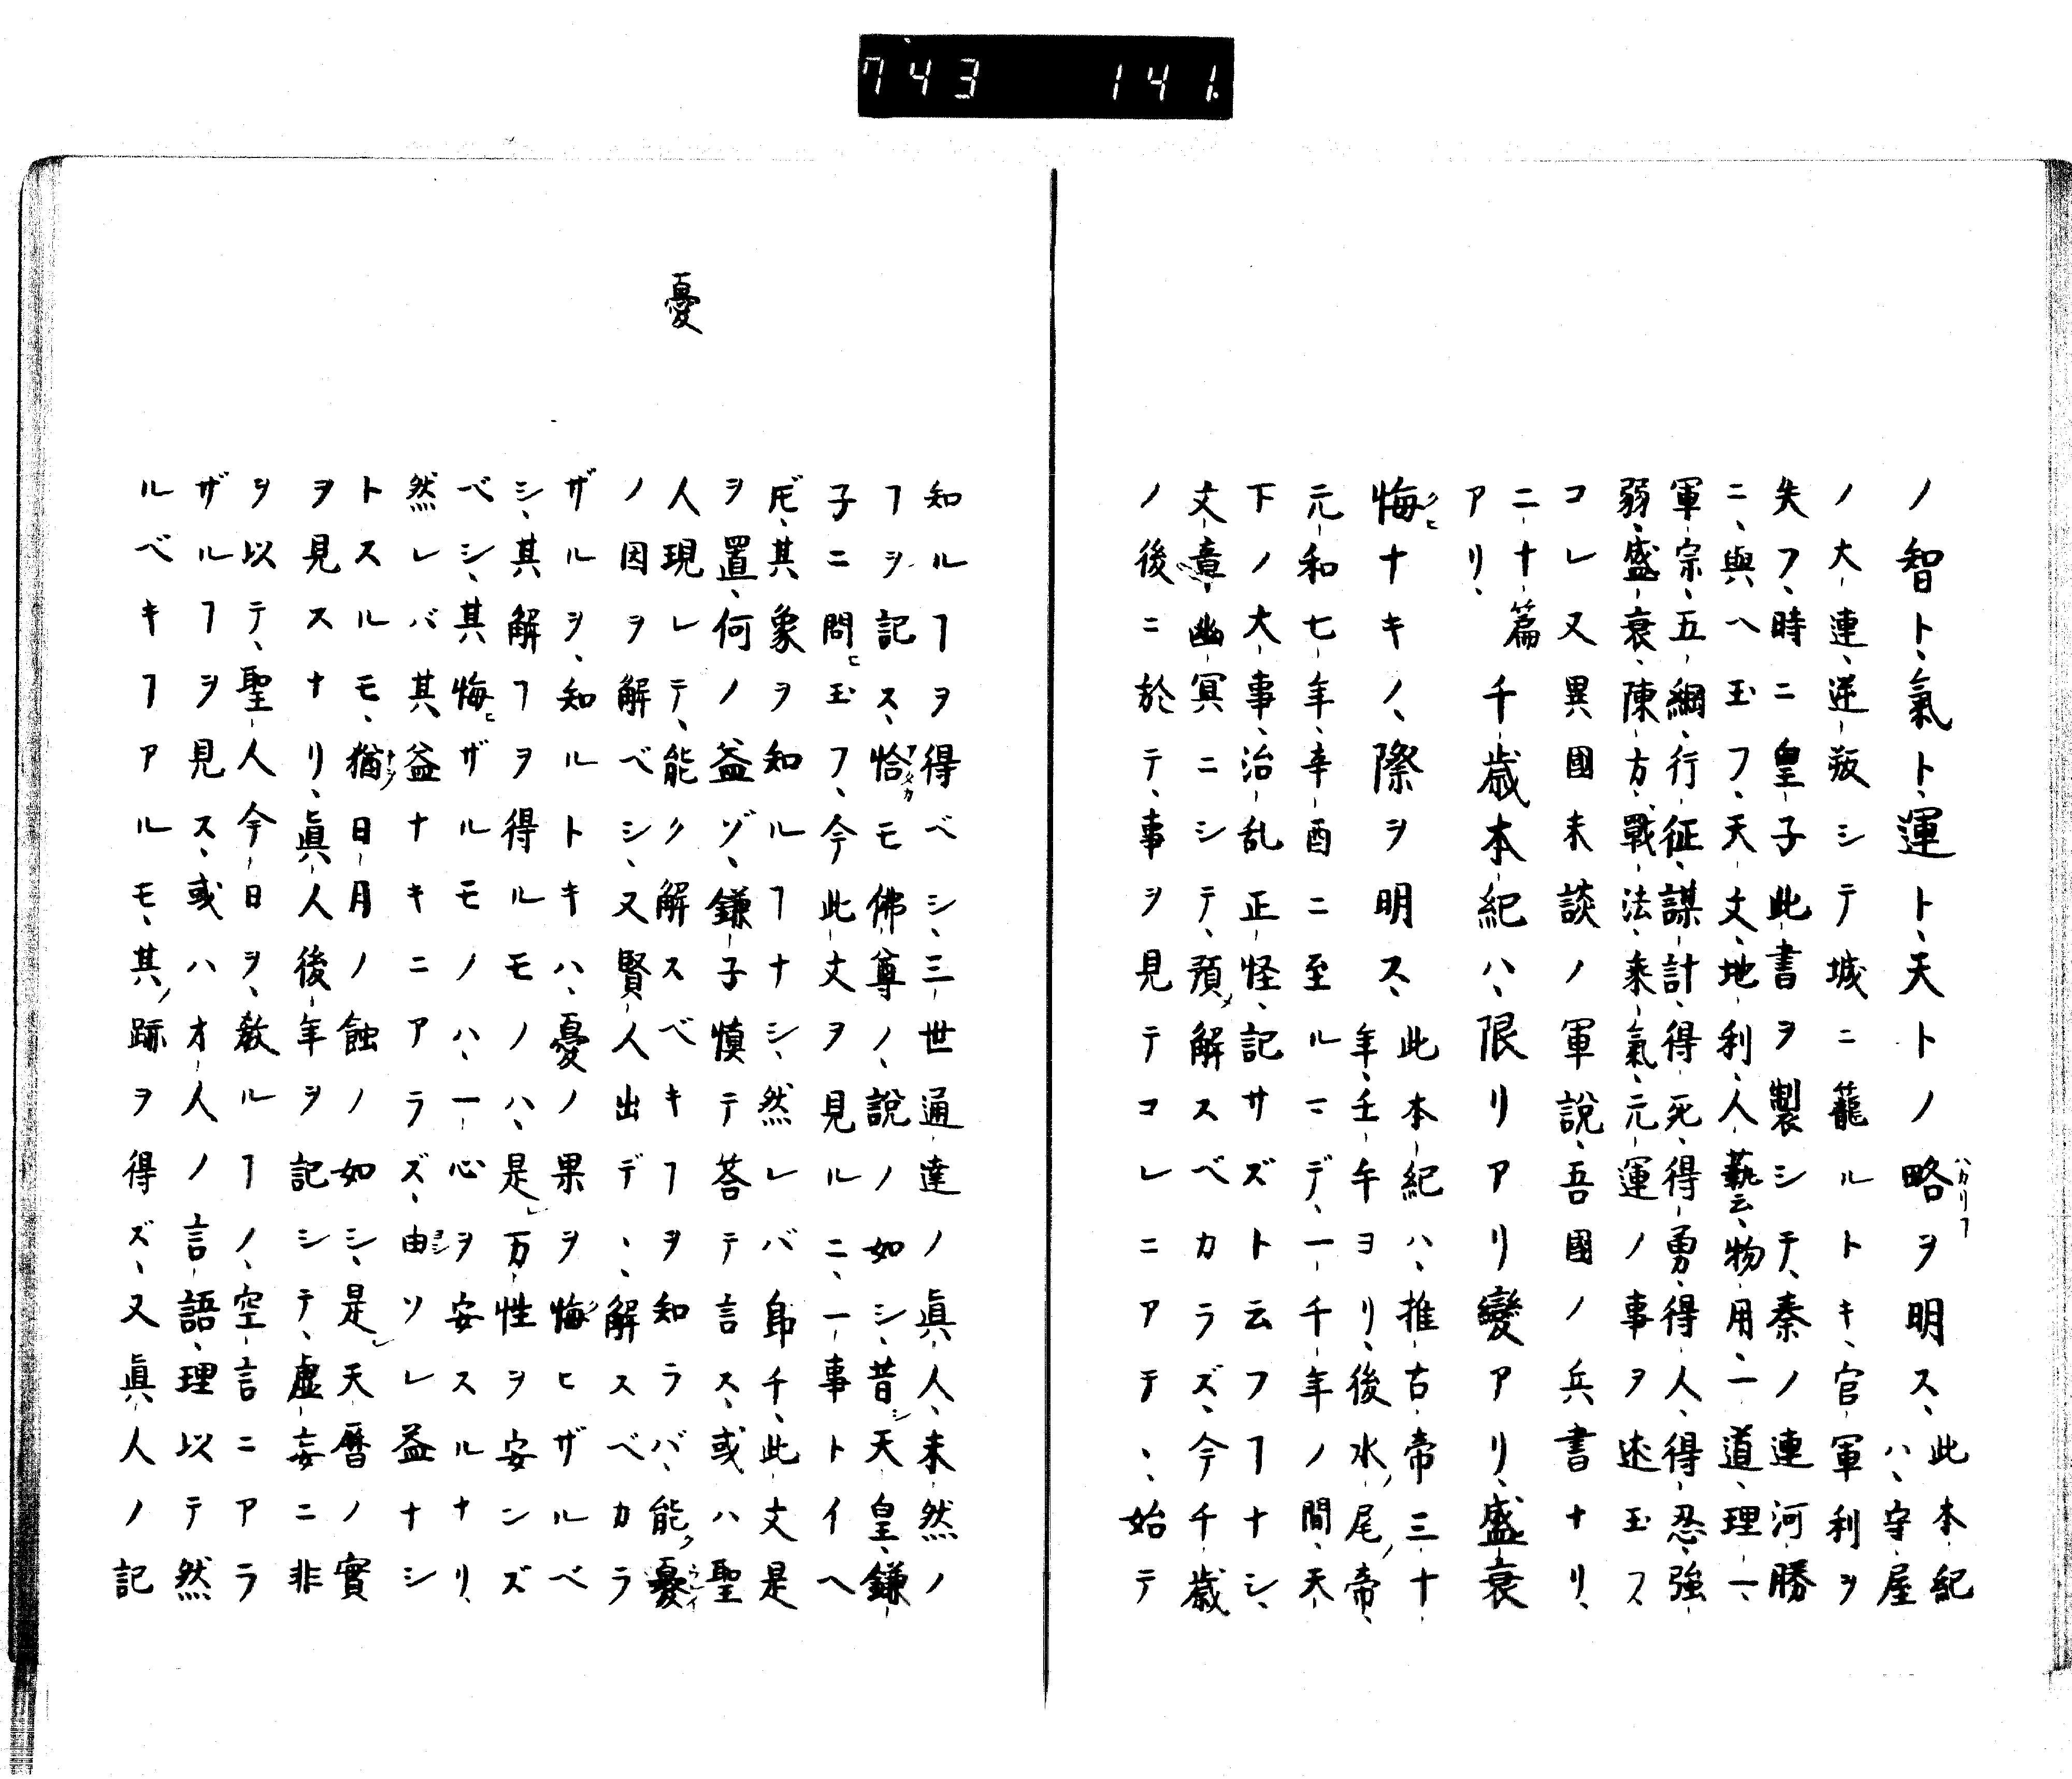 743 141.
ノ智ト、氣ト、運ト、天トノ略ヲ明ス、此本紀
ハ、守屋
ノ大連、逆叛シテ城ニ籠ルトキ、官軍利ヲ
失フ、時ニ皇子此書ヲ製シテ、秦ノ連河勝
ニ、與ヘ玉フ、天文、地利、人藝、物用、一道、理一、
軍宗、五綱、行征、謀計、得死、得勇、得人、得忍、強
弱、盛衰、陳方、戰法、乘氣、元運ノ事ヲ述玉ス
コレ又異國未談ノ軍説、吾國ノ兵書ナリ、
二十篇
アリ、
千歳本紀ハ、限リアリ變アリ、盛衰
悔ナキノ、際ヲ明ス、此本紀ハ、推古帝三十
年、壬午ヨリ、後水尾帝、
元和七年、辛酉ニ至ルニデ、一千年ノ間、天
下ノ大事、治乱正怪、記サズト云フフナシ、
文章幽冥ニシテ、預解スベカラズ、今千歳
ノ後ニ於テ、事ヲ見テコレニアテ、始テ
知ルフヲ得ベシ、三世通達ノ眞人、未然ノ
フヲ記ス、恰モ佛尊ノ、説ノ如シ、昔天皇、鎌
子ニ問玉フ、今此文ヲ見ルニ、一事トイヘ
𪜈、其象ヲ知ルフナシ、然レバ卽チ、此文是
ヲ置、何ノ益ゾ、鎌子愼テ荅テ言ス、或ハ聖
人現レテ、能ク解スベキフヲ知ラバ、能憂
ノ因ヲ解ベシ、又賢人出デ、、解スベカラ
ザルヲ、知ルトキハ、憂ノ果ヲ悔ヒザルベ
シ、其解フヲ得ルモノハ、是万性ヲ安ンズ
ベシ、其悔ザルモノハ、一心ヲ安スルナリ、
然レバ其益ナキニアラズ、由ソレ益ナシ
トスルモ、猶日月ノ蝕ノ如シ、是天暦ノ實
ヲ見スナリ、眞人後年ヲ記シテ、虚妄ニ非
ヲ以テ、聖人今日ヲ、敎ルフノ、空言ニアラ
ザルフヲ見ス、或ハオ人ノ言語、理以テ然
ルベキフアルモ、其跡ヲ得ズ、又眞人ノ記
憂